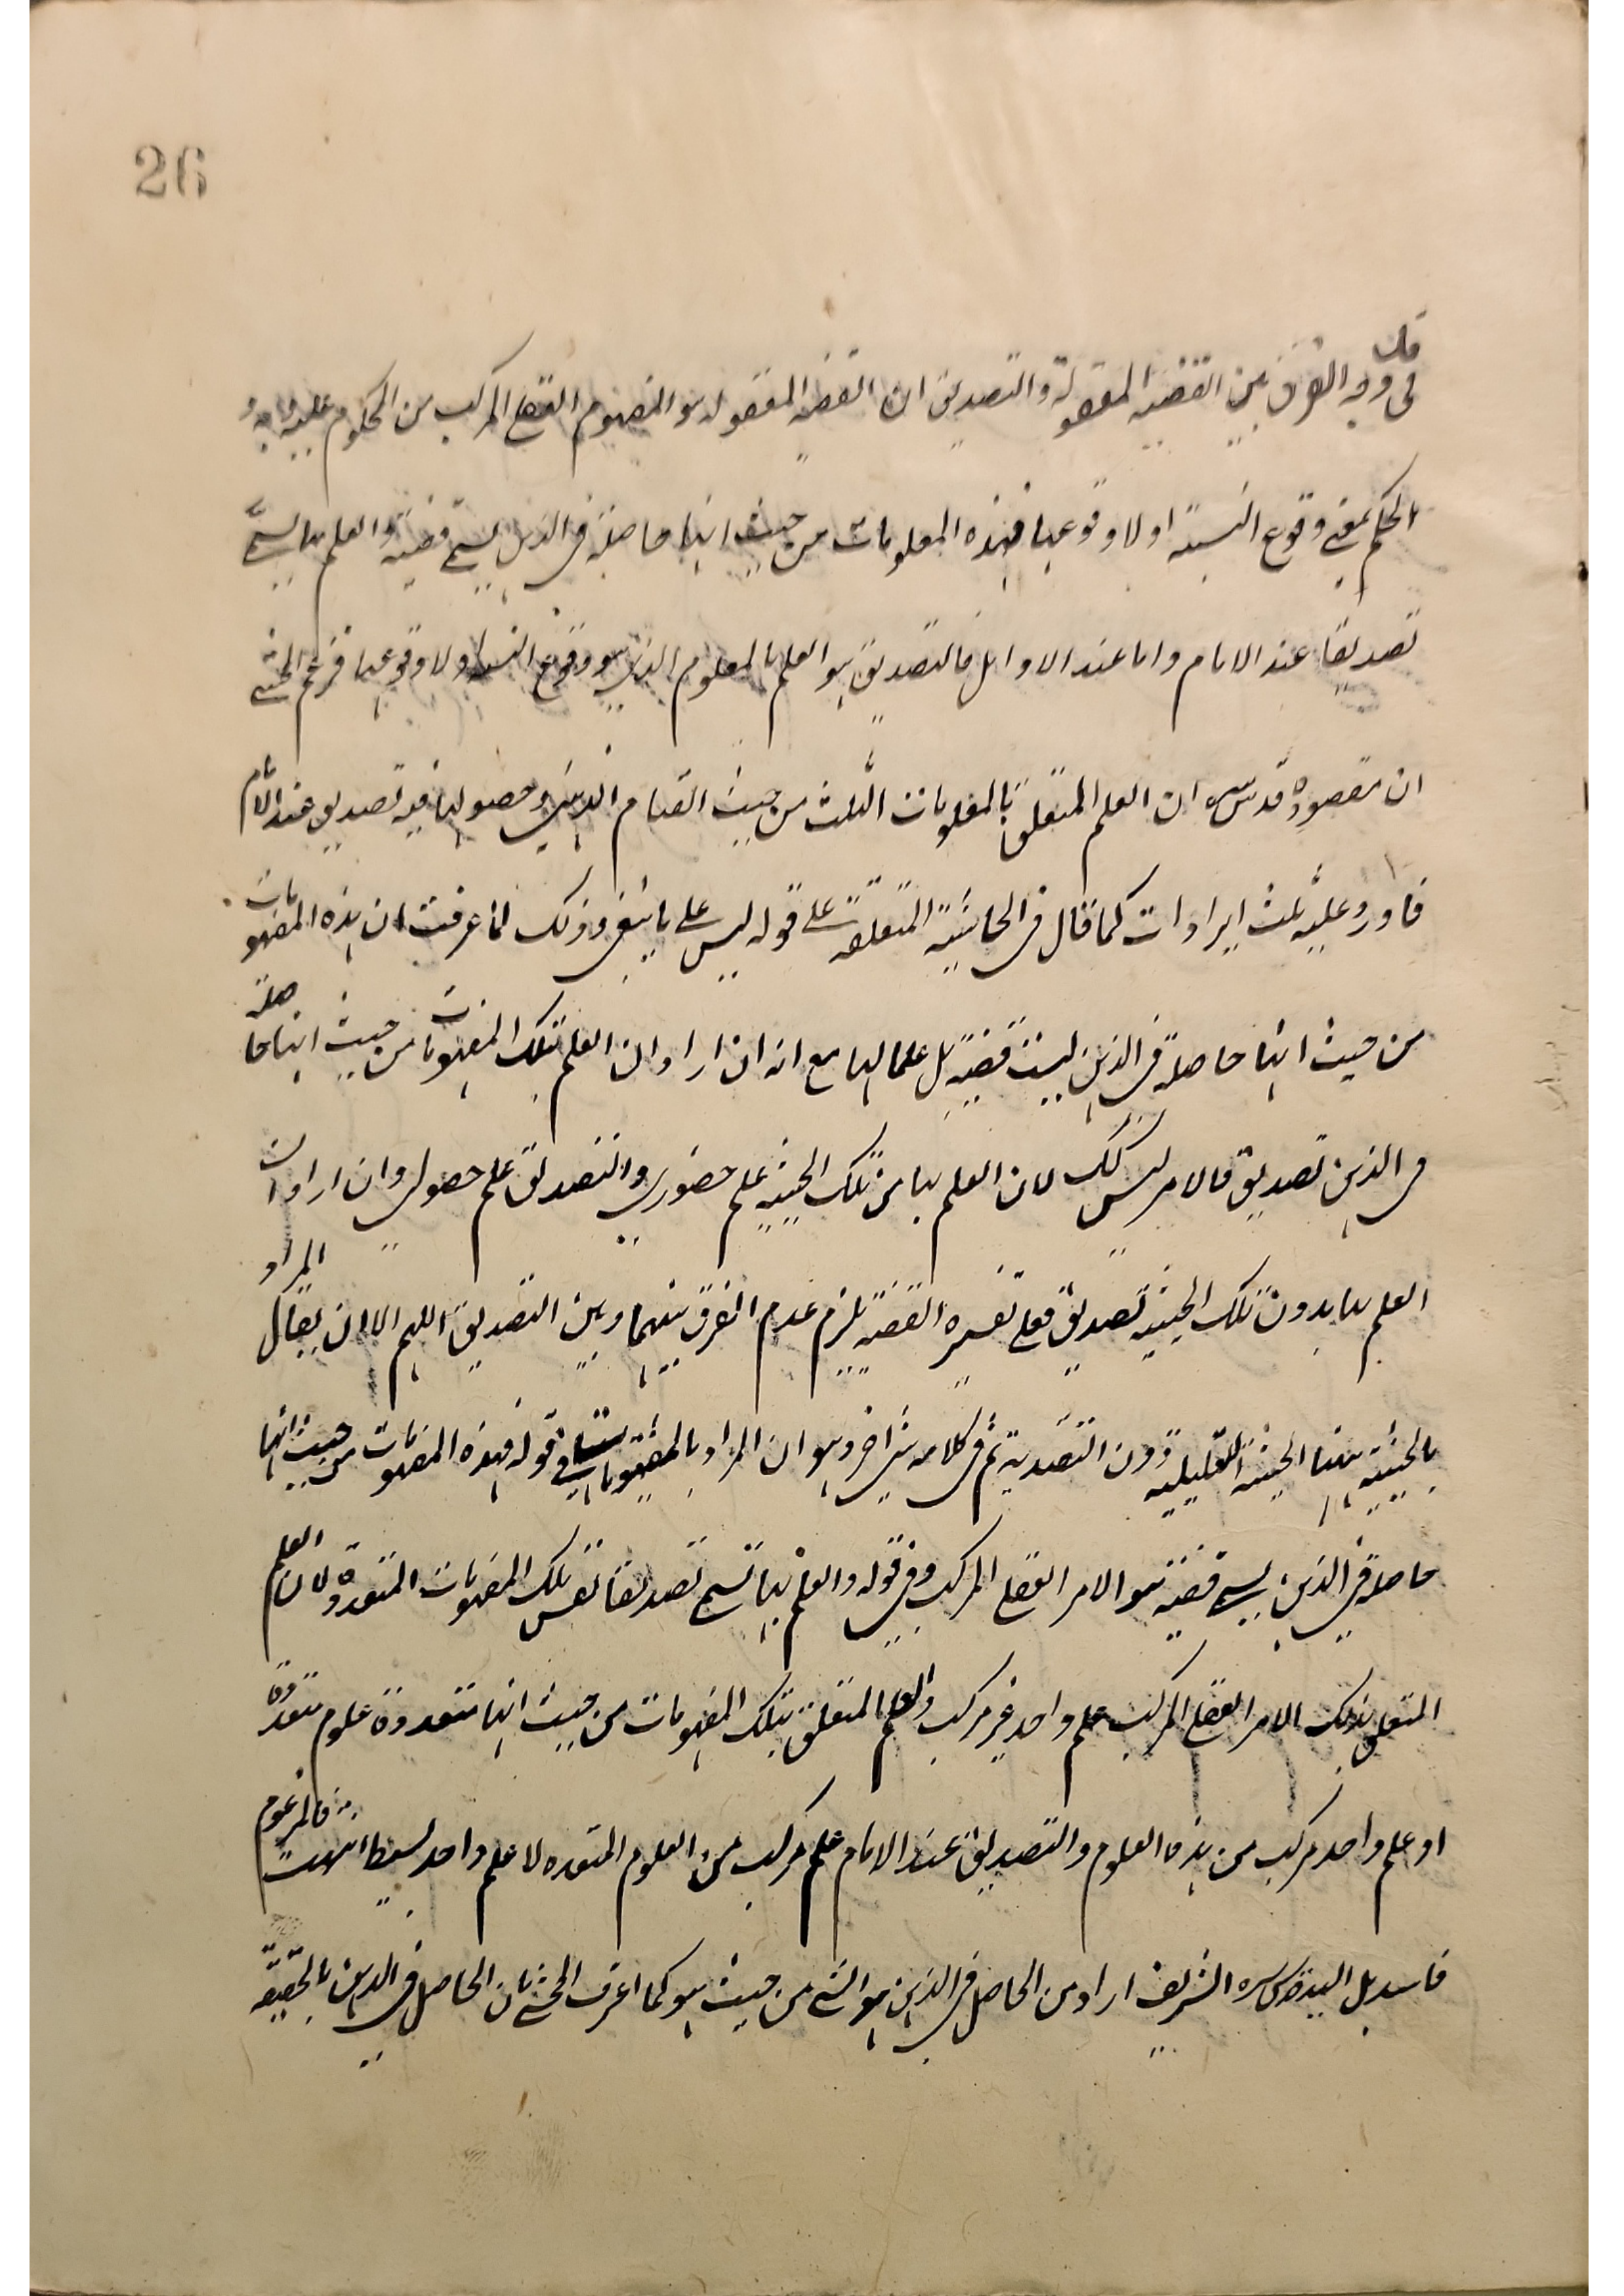 26
قال
فى وجه الفرق بين القضية المعقولة والتصديق ان القضية المعقولة هو المفهوم العقلى المركب من المحكوم عليه وبه و
الحكم بمعنى وقوع النسبة اولا وقوعها فهذه المعلومات من حيث انها حاصلة فى الذهن يسمى قضية والعلم بها يسمى
تصديقا عند الامام واما عند الاوايل فالتصديق هو العلم بالمعلوم الذى هو وقوع النسبة اولا وقوعها فزعم المحشى
ان مقصوده قدس سره ان العلم المتعلق بالمعلومات الثلث من حيث القيام الذهنى وحصولها فيه تصديق عند الامام
فاورد عليه ثلث ايرادات كما قال فى الحاشية المتعلقة على قوله ليس على ما ينبغى وذلك لما عرفت ان هذه المفهومات
من حيث انها حاصلة فى الذهن ليست قضية بل علما لها مع انه ان اراد ان العلم بتلك المفهومات من حيث انها حاصلة
فى الذهن تصديق فالامر ليس كك لان العلم بها من تلك الحيثية علم حضورى والتصديق علم حصولى وان اراد ان
العلم بها بدون تلك الحيثية تصديق فعلى تفسيره القضية يلزم عدم الفرق بينهما وبين التصديق اللهم الا ان يقال المراد
بالحيثية ههنا الحيثية التعليلية دون التقييدية ثم فى كلامه شئ اخر وهو ان المراد بالمفهومات فى قوله فهذه المفهومات من حيث انها
حاصلة فى الذهن يسمى قضية هو الامر العقلى المركب وفى قوله والعلم بها تسمى تصديقا نفس تلك المفهومات المتعددة لان العلم
المتعلق بذلك الامر العقلى المركب علم واحد غير مركب والعلم المتعلق بتلك المفهومات من حيث انها متعددة علوم متعددة
او علم واحد مركب من هذه العلوم والتصديق عند الامام علم مركب من العلوم المتعدده لا علم واحد بسيط انتهت فالمزعوم
فاسد بل السيد قدس سره الشريف اراد من الحاصل فى الذهن هو الشئ من حيث هو كما اعرف المحشى بان الحاصل فى الذهن بالحقيقة